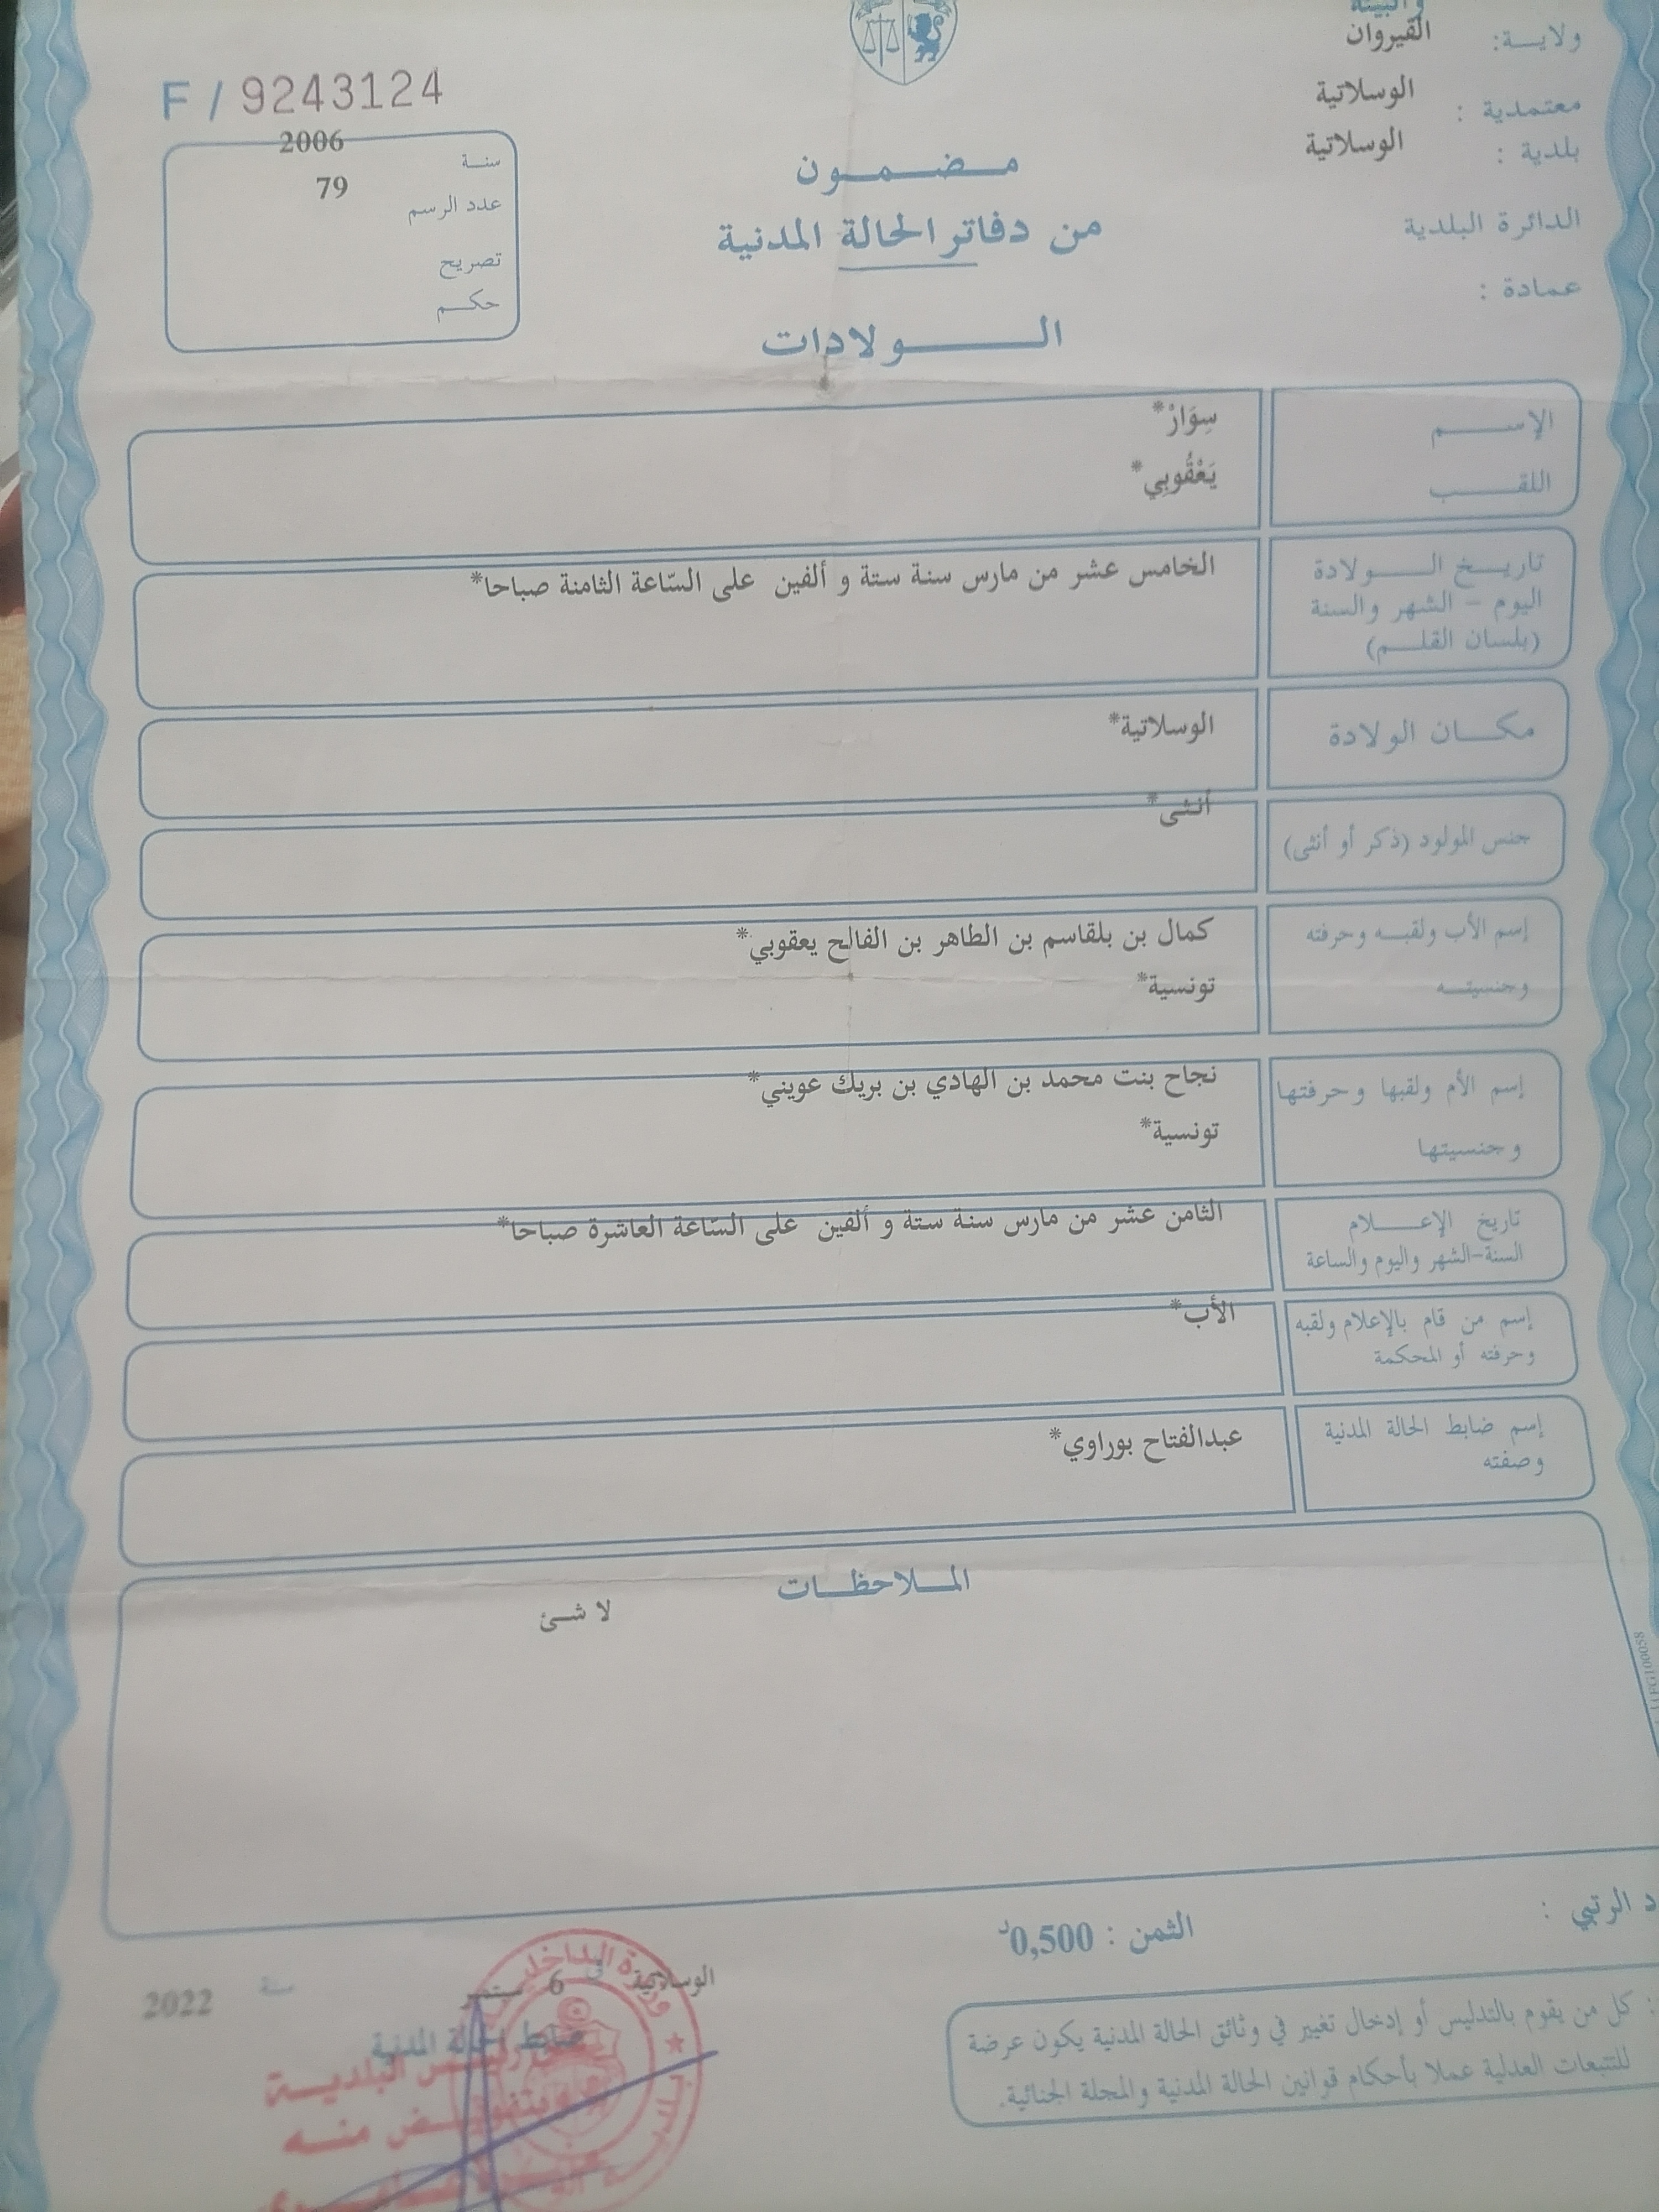 والبيئة
ولايـــة: القيروان
معتمدية : الوسلاتية
بلدية : الوسلاتية
الدائرة البلدية
عمادة :
F / 9243124
سنــة 2006
عدد الرسم 79
تصريح
حكــم
مـــضـــمــــون
من دفاتر الحالة المدنية
الـــــــولادات
الإســـــــم سِوَارْ*
اللقـــــــب يَعْقُوبِي*
تاريــخ الـــــولادة الخامس عشر من مارس سنة ستة و ألفين على السّاعة الثامنة صباحا*
اليوم – الشهر والسنة
(بلسان القلــــم)
مكـــــان الولادة الوسلاتية*
جنس المولود (ذكر أو أنثى) أنثى*
إسم الأب ولقبــه وحرفته كمال بن بلقاسم بن الطاهر بن الفالح يعقوبي*
وجنسيتــــه تونسية*
إسم الأم ولقبها وحرفتها نجاح بنت محمد بن الهادي بن بريك عويني*
وجنسيتها تونسية*
تاريخ الإعـــــلام الثامن عشر من مارس سنة ستة و ألفين على السّاعة العاشرة صباحا*
السنة-الشهر واليوم والساعة
إسم من قام بالإعلام ولقبه الأب*
وحرفته أو المحكمة
إسم ضابط الحالة المدنية عبدالفتاح بوراوي*
وصفته
الملاحظــــات
لا شــئ
الرتبي :
الثمن : 0,500د
الوسلاتية في 6 سبتمبر سنة 2022
ضابط الحالة المدنية
رئيس البلديــــة
وبتفويــض منــــه
وزارة الداخلية
كل من يقوم بالتدليس أو إدخال تغيير في وثائق الحالة المدنية يكون عرضة
للتتبعات العدلية عملا بأحكام قوانين الحالة المدنية والمجلة الجنائية.